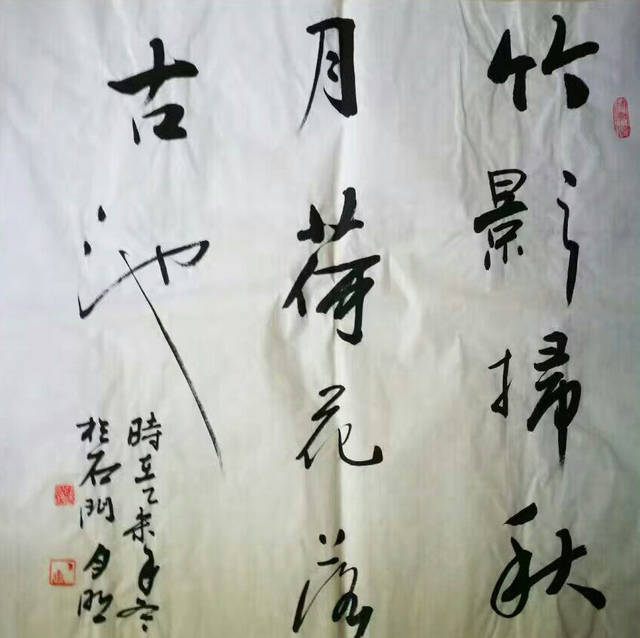 竹影掃秋
月荷花落
古池
時在乙未年冬
於石門